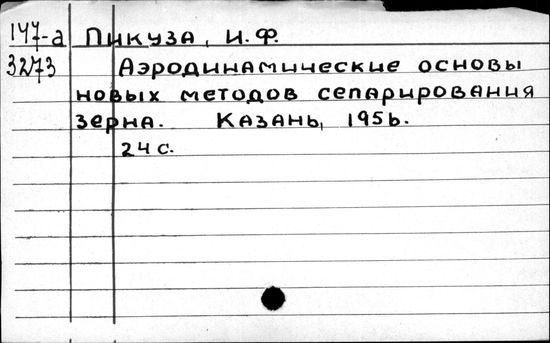 147-а Пикуза, И.Ф.
3273 Аэродинамические основы
новых методов сепарирования
зерна. Казань, 1956.
24 с.